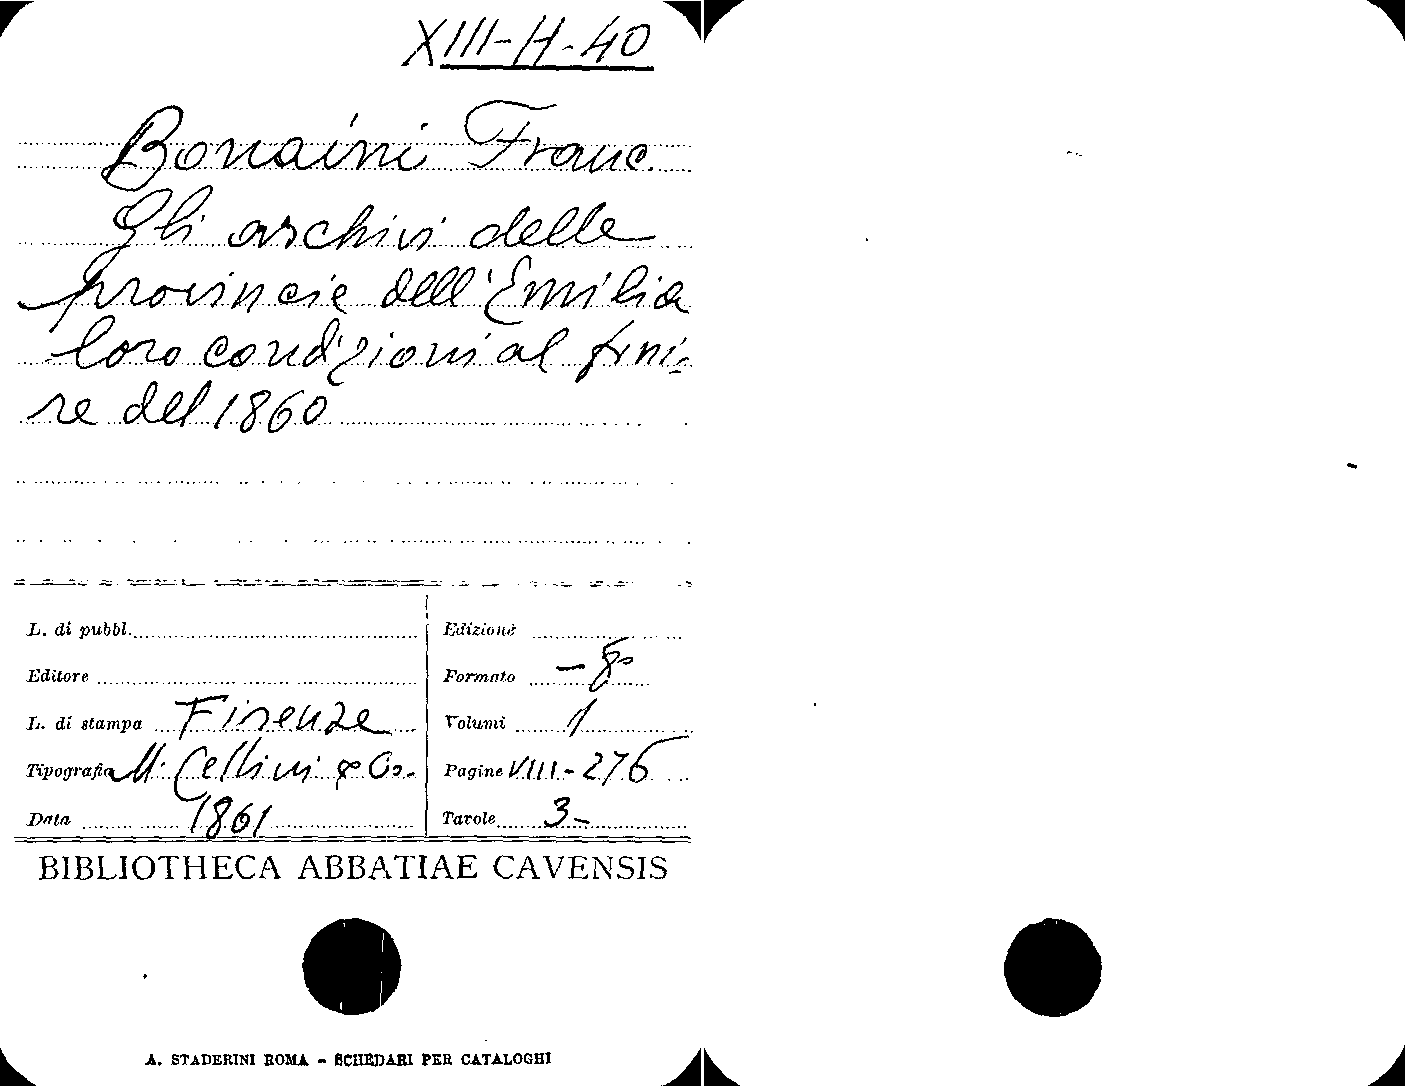 XIII-H-40
Bonaini Franc.
Gli archivi delle
provincie dell'Emilia
loro condizioni al fini-
re del 1860
L. di pubbl.
Edizione
Editore
Formato - 8°
L. di stampa Firenze
Volumi 1
Tipografia M. Cellini & Co.
Pagine VIII-276
Data 1861
Tavole 3-
BIBLIOTHECA ABBATIAE CAVENSIS
A. STADERINI ROMA - SCHEDARI PER CATALOGHI